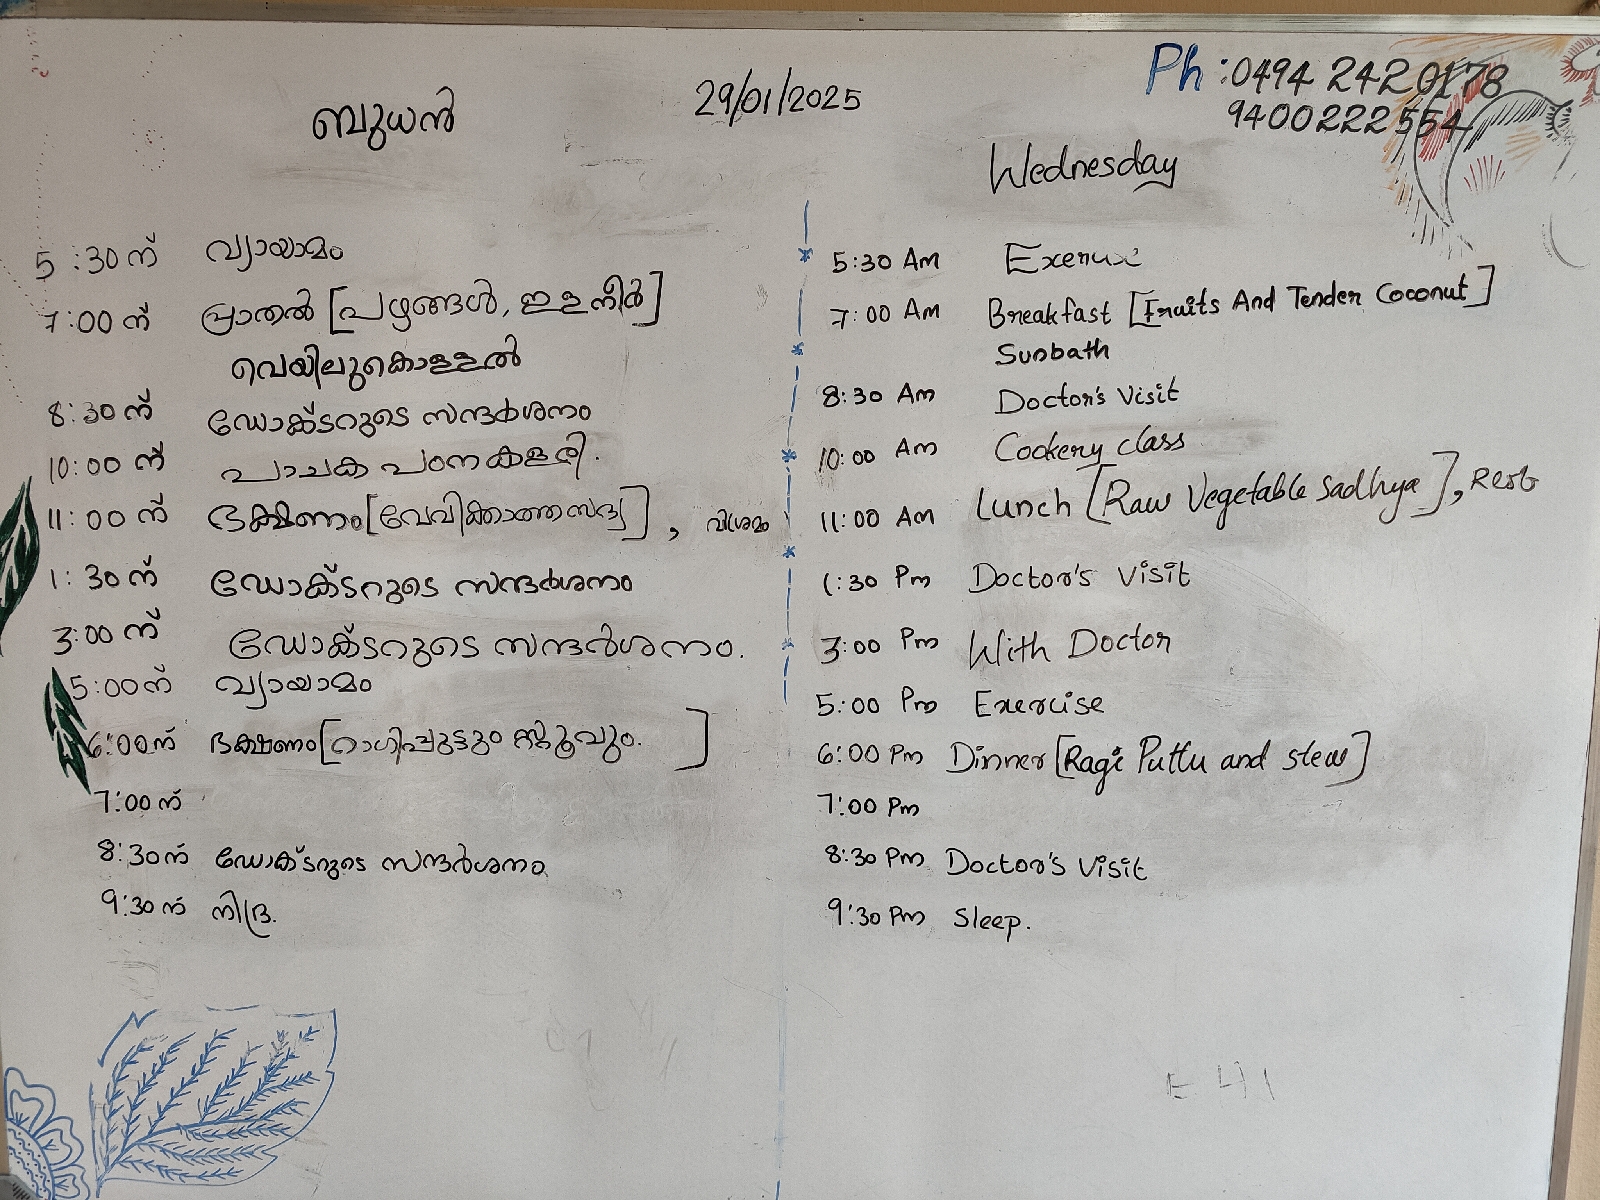 29/01/2025
Ph : 0494 242 0178
9400222554
ബുധൻ
5:30ന് വ്യായാമം
7:00ന് പ്രാതൽ [പഴങ്ങൾ, ഇളനീർ]
വെയിലുകൊള്ളൽ
8:30ന് ഡോക്ടറുടെ സന്ദർശനം
10:00ന് പാചക പഠനകളരി.
11:00ന് ഭക്ഷണം [വേവിക്കാത്ത സദ്യ], വിശ്രമം
1:30ന് ഡോക്ടറുടെ സന്ദർശനം
3:00ന് ഡോക്ടറുടെ സന്ദർശനം.
5:00ന് വ്യായാമം
6:00ന് ഭക്ഷണം [റാഗിപ്പുട്ടും സ്റ്റൂവും. ]
7:00ന്
8:30ന് ഡോക്ടറുടെ സന്ദർശനം
9:30ന് നിദ്ര.
Wednesday
5:30 Am Exercise
7:00 Am Breakfast [Fruits And Tender Coconut]
Sunbath
8:30 Am Doctor's Visit
10:00 Am Cookery class
11:00 Am Lunch [Raw Vegetable Sadhya], Rest
1:30 Pm Doctor's Visit
3:00 Pm With Doctor
5:00 Pm Exercise
6:00 Pm Dinner [Ragi Puttu and stew]
7:00 Pm
8:30 Pm Doctor's Visit
9:30 Pm Sleep.